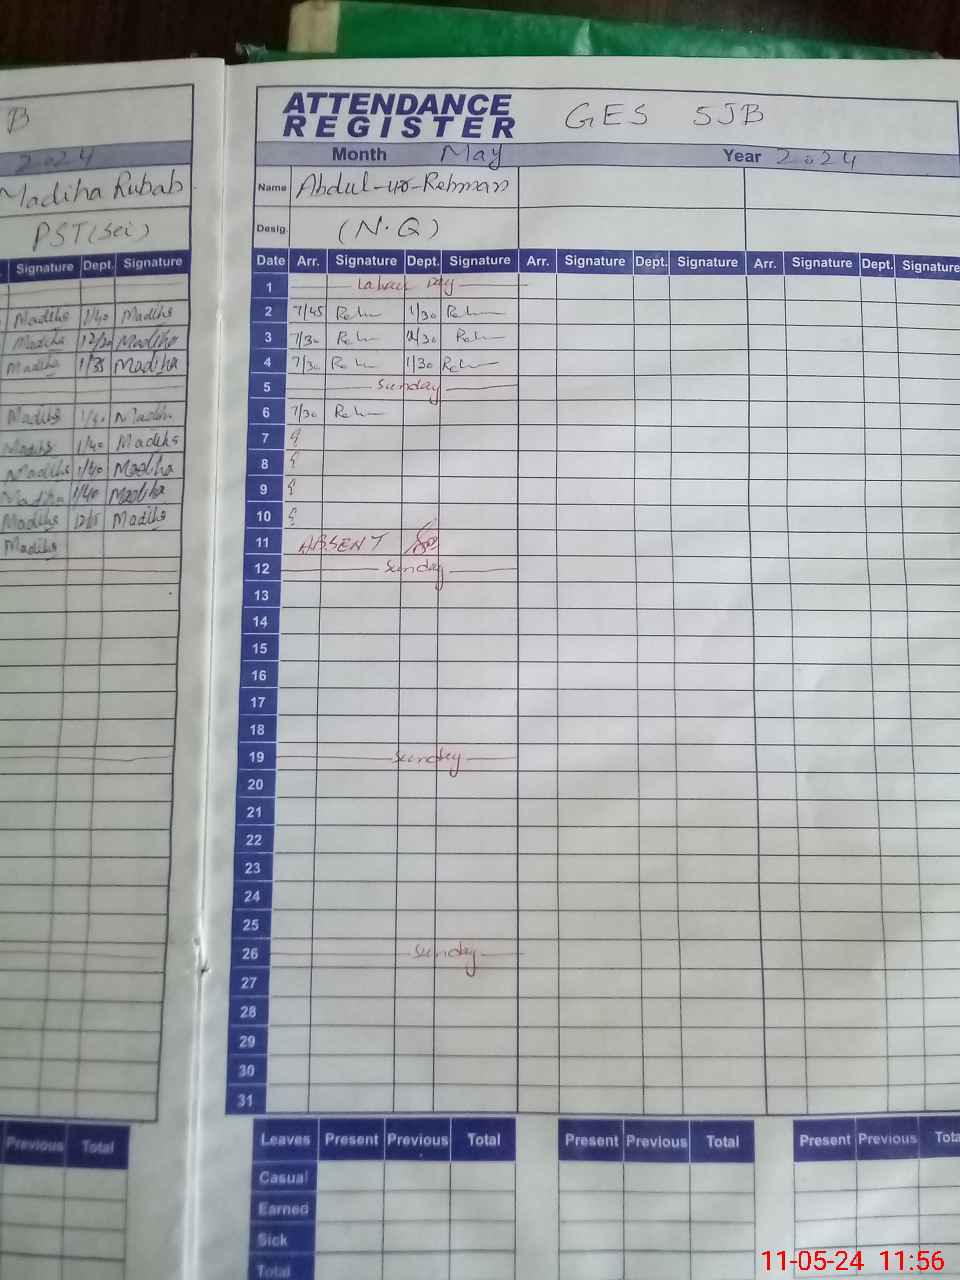 B
2024
Madiha Rubab
PST(Sci)
Signature Dept. Signature
Madiha 1/40 Madiha
Madiha 12/20 Madiha
Madiha 1/35 Madiha
Madiha Madiha
Madiha 1/40 Madiha
Madiha 1/40 Madiha
Madiha 1/40 Madiha
Madiha 12/15 Madiha
Madiha
Previous Total
ATTENDANCE REGISTER GES 5JB
Month May Year 2024
Name Abdul-ur-Rehman
Desig. (N.Q)
Date Arr. Signature Dept. Signature Arr. Signature Dept. Signature Arr. Signature Dept. Signature
1 Labour Day
2 7/45 Reh 1/30 Reh
3 7/30 Reh Reh
4 7/30 Reh 1/30 Reh
5 Sunday
6 7/30 Reh
7
8
9
10
11 ABSENT
12 Sunday
13
14
15
16
17
18
19 Sunday
20
21
22
23
24
25
26 Sunday
27
28
29
30
31
Leaves Present Previous Total Present Previous Total Present Previous
Casual
Earned
Sick
Total
11-05-24 11:56